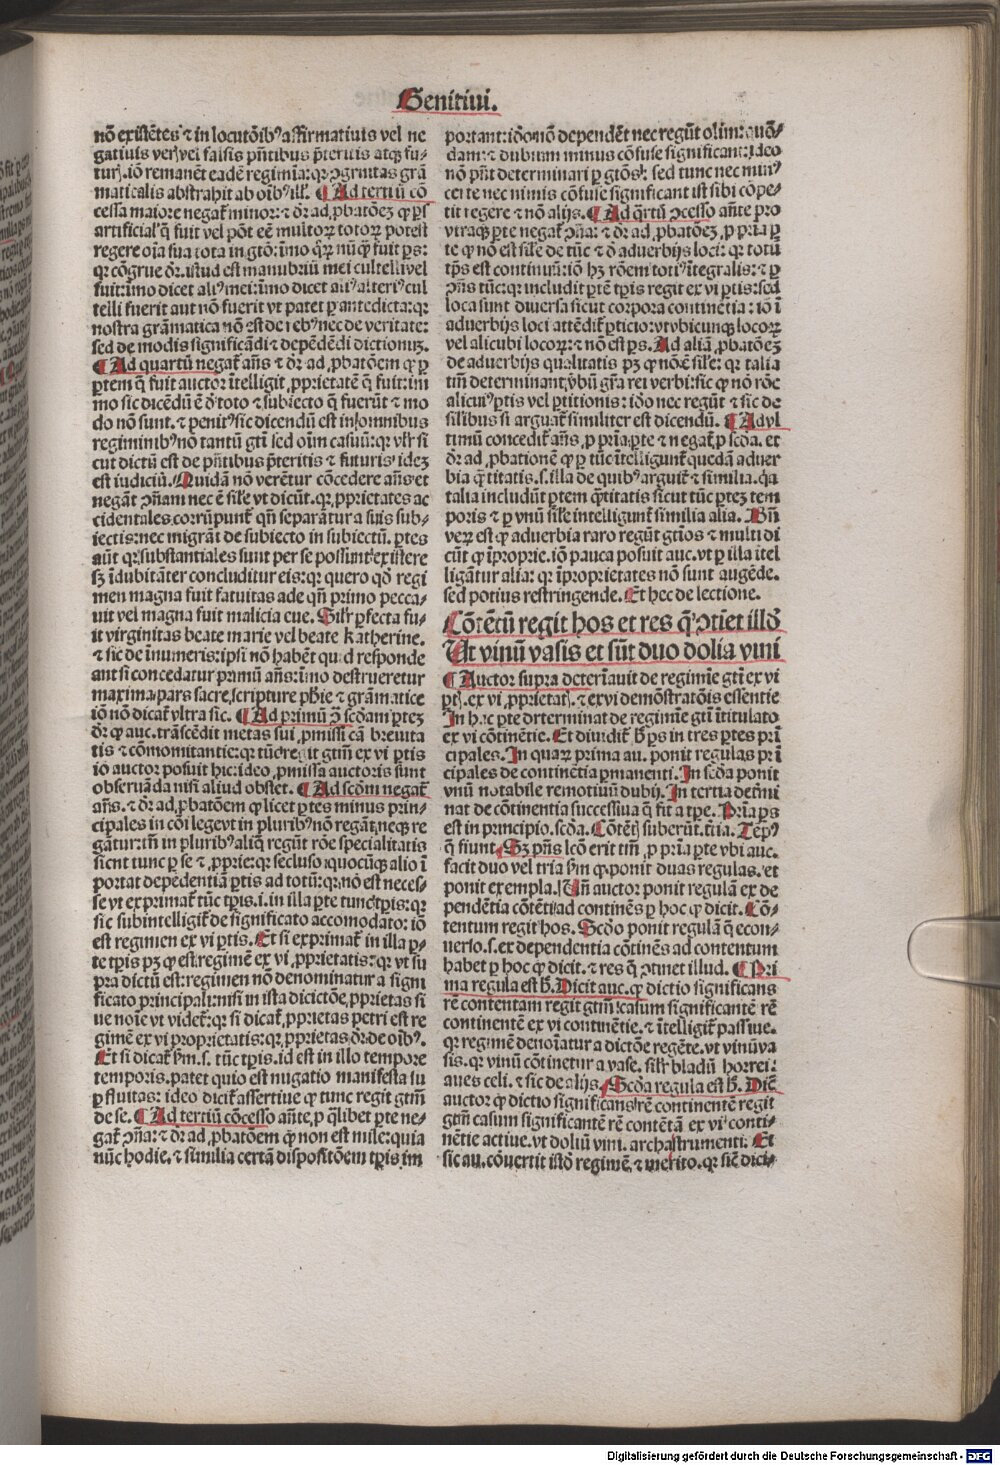 Genitiui.
nō existētes ⁊ in locutōibꝰ affirmatiuis vel ne
gatiuis veris vel falsis pn̄tibus p̄teritis atqꝫ fu⸗
turis. iō remanēt eadē regimīa: qꝛ ꝯgruitas grā
maticalis abstrahit ab oībꝰ ill. ¶ Ad tertiū cō
cessa maiore negat minor: ⁊ dr̄ ad ꝓbatōeꝫ ꝙ
artificial fuit vel pōt eē multoꝝ totoꝝ potest
regere
qꝛ cōgrue dr̄. istud est manubriū mei cultelli vel
fuit: īmo dicet aliꝰ mei: īmo dicet alterī cul
telli fuerit aut nō fuerit vt patet ꝑ antedicta: qꝛ
nostra grāmatica nō est de rebꝰ nec de veritate:
sed de modis significādi ⁊ depēdēdi dictionuꝫ.
¶ Ad quartū negat añs ⁊ dr̄ ad ꝓbatōem ꝙ ꝑ
ꝑtem q̄ fuit auctor ītelligit ꝓprietatē q̄ fuit: im
mo sic dicēdū ē ō toto ⁊ subiecto q̄ fuerūt ⁊ mo
do nō sunt. ⁊ penitꝰ sic dicendū est in omnibus
regiminibꝰ nō tantū gti sed oīm casuū: qꝛ vlr si
cut dictū est de pn̄tibus p̄teritis ⁊ futuris ideꝫ
est iudiciū. Quidā nō verētur cōcedere añs et
negāt ꝯn̄am nec ē sile vt dicūt. qꝛ ꝓprietates ac
cidentales corrūpunt qn̄ separātur a suis sub⸗
iectis: nec migrāt de subiecto in subiectū. ꝑtes
aūt qꝛ substantiales sunt per se possunt existere
sꝫ īdubitāter concluditur eis: qꝛ quero qd regi
men magna fuit fatuitas ade qn̄ primo pecca⸗
uit vel magna fuit malicia eue. Silr ꝑfecta fu⸗
it virginitas beate marie vel beate Katherine.
⁊ sic de inumeris: ipsi nō habēt quid responde
ant si concedatur primū añs: īmo destrueretur
maxima pars sacre scripture phie ⁊ grāmatice
iō nō dicat vltra sic. ¶ Ad primū ꝯ scdam ꝑteꝫ
dr̄ ꝙ auc. trāscēdit metas sui ꝓmissi cā breuita
tis ⁊ cōmomitantie: qꝛ tūc regit gtm ex vi ꝑtis
iō auctor posuit hic: ideo ꝓmissa auctoris sunt
obseruāda nisi aliud obstet. ¶ Ad scdm negat
añs. ⁊ dr̄ ad ꝓbatōem ꝙ licet ꝑtes minus prin⸗
cipales in cōi legēt in pluribꝰ nō regāt neqꝫ re
gātur: tn̄ in pluribꝰ aliq̄ regūt rōe specialitatis
sicut tunc ꝑ se ⁊ ꝓprie: qꝛ secluso quocūqꝫ alio ī
portat depedentiā ꝑtis ad totū: qꝛ nō est neces⸗
se vt exprimat tūc tꝑis. i. in illa ꝑte tunc tꝑis: qꝛ
sic subintelligit de significato accomodato: iō
est regimen ex vi ꝑtis. Et si exprimat in illa ꝑ⸗
te tꝑis pꝫ ꝙ est regimē ex vi ꝓprietatis: qꝛ vt su
pra dictū est: regimen nō denominatur a signi
ficato principali: nisi in ista dicitiōe ꝓprietas si
ue noīe vt videt: qꝛ si dicat ꝓprietas petri est re
gimē ex vi proprietatis: qꝛ ꝓprietas dr̄ de oībꝰ.
Et si dicat h̄m. s. tūc tꝑis. id est in illo tempore
temporis. patet quio est nugatio manifesta su
ꝑfluitas: ideo dicit assertiue ꝙ tunc regit gtm̄
de se. ¶ Ad tertiū cōcesso añte ꝓ qlibet ꝑte ne⸗
gat ꝯn̄a: ⁊ dr̄ ad ꝓbatōem ꝙ non est mile: quia
nūc hodie. ⁊ similia certā dispositōem tꝑis im
portant: ideo nō dependēt nec regūt olim: quō⸗
dam: ⁊ dubium minus cōfuse significant: ideo
nō pn̄t determinari ꝑ gtos: sed tunc nec minꝰ
certe nec nimis cōfuse significant ist sibi cōpe⸗
tit regere ⁊ nō alijs. ¶ Ad qrtū ꝯcesso añte pro
vtraqꝫ ꝑte negat ꝯn̄a: ⁊ dr̄ ad ꝓbatōeꝫ ꝓ pria ꝑ
te ꝙ nō est sile de tūc ⁊ ō aduerbijs loci: qꝛ totū
tp̄s est continuū: iō hꝫ rōem totiꝰ ītegralis: ⁊ ꝑ
ꝯn̄s tūc: qꝛ includit ꝑtē tꝑis regit ex vi ꝑtis: sed
loca sunt diuersa sicut corpora continētia: iō ī
aduerbijs loci attēdit ꝑticio: vt vbicunqꝫ locoꝝ
vel alicubi locoꝝ: ⁊ nō est ꝑs. Ad aliā ꝓbatōeꝫ
de aduerbijs qualitatis pꝫ ꝙ nō ē sile: qꝛ talia
tm̄ determinant ybū gr̄a rei verbi: sic ꝙ nō rōe
alicuiꝰ ꝑtis vel ꝑtitionis: ideo nec regūt ⁊ sic de
silibus si arguat similiter est dicendū. ¶ Ad vl
timū concedit añs ꝓ pria ꝑte ⁊ negat ꝓ scda. et
dr̄ ad ꝓbationē ꝙ ꝑ tūc ītelligunt quedā aduer
bia qtitatis. s. illa de quibꝰ arguit ⁊ similia. qa
talia includūt ꝑtem qtitatis sicut tūc ꝑteꝫ tem
poris ⁊ ꝑ vnū sile intelligunt similia alia. Bn̄
verꝫ est ꝙ aduerbia raro regūt gtios ⁊ multi di
cūt ꝙ īproprie. iō pauca posuit auc. vt ꝑ illa itel
ligātur alia: qꝛ īproprietates nō sunt augēde.
sed potius restringende. Et hec de lectione.
Cōtētū regit hos et res q̄ ꝯtiet illō
Ut vinū vasis et sūt duo dolia vini
¶ Auctor supra determīauit de regimīe gti ex vi
ꝑtis. ex vi ꝓprietatis. ⁊ ex vi demōstratōis essentie
In hac ꝑte determinat de regimīe gti ītitulato
ex vi cōtinētie. Et diuidit h̄ ꝑs in tres ꝑtes pri
cipales. In quaꝝ prima au. ponit regulas pri
cipales de continētia ꝑmanenti. In scda ponit
vnū notabile remotiuū dubij. In tertia detmi
nat de cōtinentia successiua q̄ fit a tp̄e. Pria ꝑs
est in principio. scda. Cōtētis suberūt. tia. Tepꝰ
q̄ fiunt. Sꝫ pn̄s lcō erit tm̄ ꝓ pria ꝑte vbi auc.
facit duo vel tria h̄m ꝙ ponit duas regulas. et
ponit exempla. Un̄ auctor ponit regulā ex de
pendētia cōtēti ad continēs ꝑ hoc ꝙ dicit. Cō⸗
tentum regit hos. Scdo ponit regulā q̄ econ⸗
uerso. s. ex dependentia cōtinēs ad contentum
habet ꝑ hoc ꝙ dicit. ⁊ res q̄ ꝯtinet illud. ¶ Pri
ma regula est h̄. Dicit auc. ꝙ dictio significans
rē contentam regit gtm̄ casum significantē rē
continentē ex vi continētie. ⁊ ītelligit passiue.
qꝛ regimē denoīatur a dictōe regēte. vt vinū va
sis. qꝛ vinū cōtinetur a vase. silr bladū horrei:
aues celi. ⁊ sic de alijs. Scda regula est h̄. Dicit
auctor ꝙ dictio significans rē continentē regit
gtm̄ casum significantē rē contētā ex vi conti⸗
nētie actiue. vt doliū vini. archa strumenti. Et
sic au. cōuertit istō regimē. ⁊ merito. qꝛ siē dici⸗
Digitalisierung gefördert durch die Deutsche Forschungsgemeinschaft - DFG